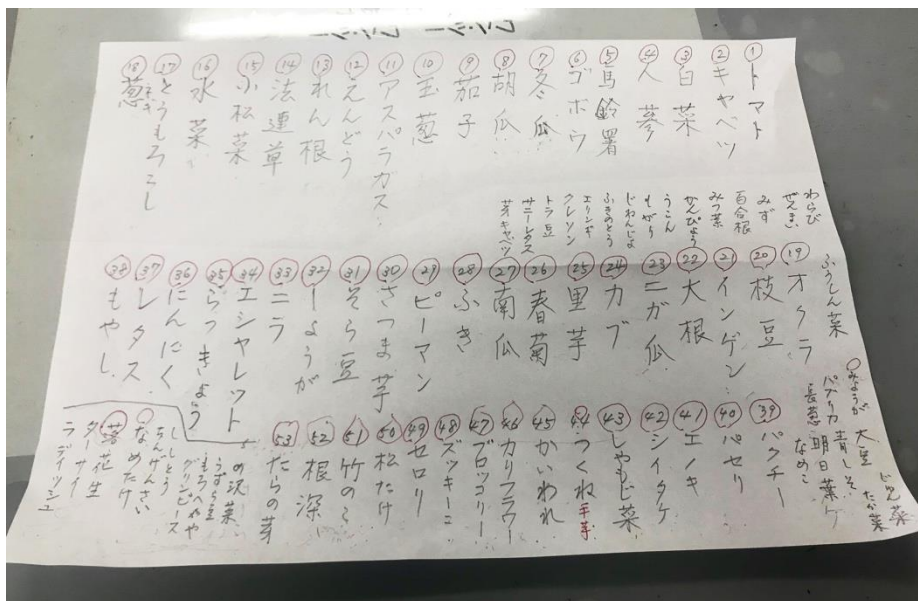 ① トマト
② キャベツ
③ 白菜
④ 人参
⑤ 馬鈴署
⑥ ゴボウ
⑦ 冬瓜
⑧ 胡瓜
⑨ 茄子
⑩ 玉葱
⑪ アスパラガス
⑫ えんどう
⑬ れん根
⑭ 法連草
⑮ 小松菜
⑯ 水菜
⑰ とうもろこし
⑱ 葱 ネギ
わらび
ぜんまい
みず
百合根
みつ葉
かんぴょう
うこん
もずく
じねんじょ
ふきのとう
エリンギ
クレソン
トラ豆
サニーレタス
芽キャベツ
⑲ オクラ
⑳ 枝豆
㉑ インゲン
㉒ 大根
㉓ ニガ瓜
㉔ カブ
㉕ 里芋
㉖ 春菊
㉗ 南瓜
㉘ ふき
㉙ ピーマン
㉚ さつま芋
㉛ そら豆
㉜ しょうが
㉝ ニラ
㉞ エシャレット
㉟ らっきょう
㊱ にんにく
㊲ レタス
㊳ もやし
みょうが 大豆
パプリカ 青しそ
長葱 明日葉
なめこ
㊴ パクチー
㊵ パセリ
㊶ エノキ
㊷ シイタケ
㊸ しゃもじ菜
㊹ つくね芋
㊺ かいわれ
㊻ カリフラワー
㊼ ブロッコリー
㊽ ズッキーニ
㊾ セロリー
㊿ 松たけ
51 竹のこ
52 根深
53 たらの芽
の沢菜
うずら豆
もろへやや
グリンピース
ちんげんさい
ししとう
なめたけ
落花生
ターサイ
ラディッシュ